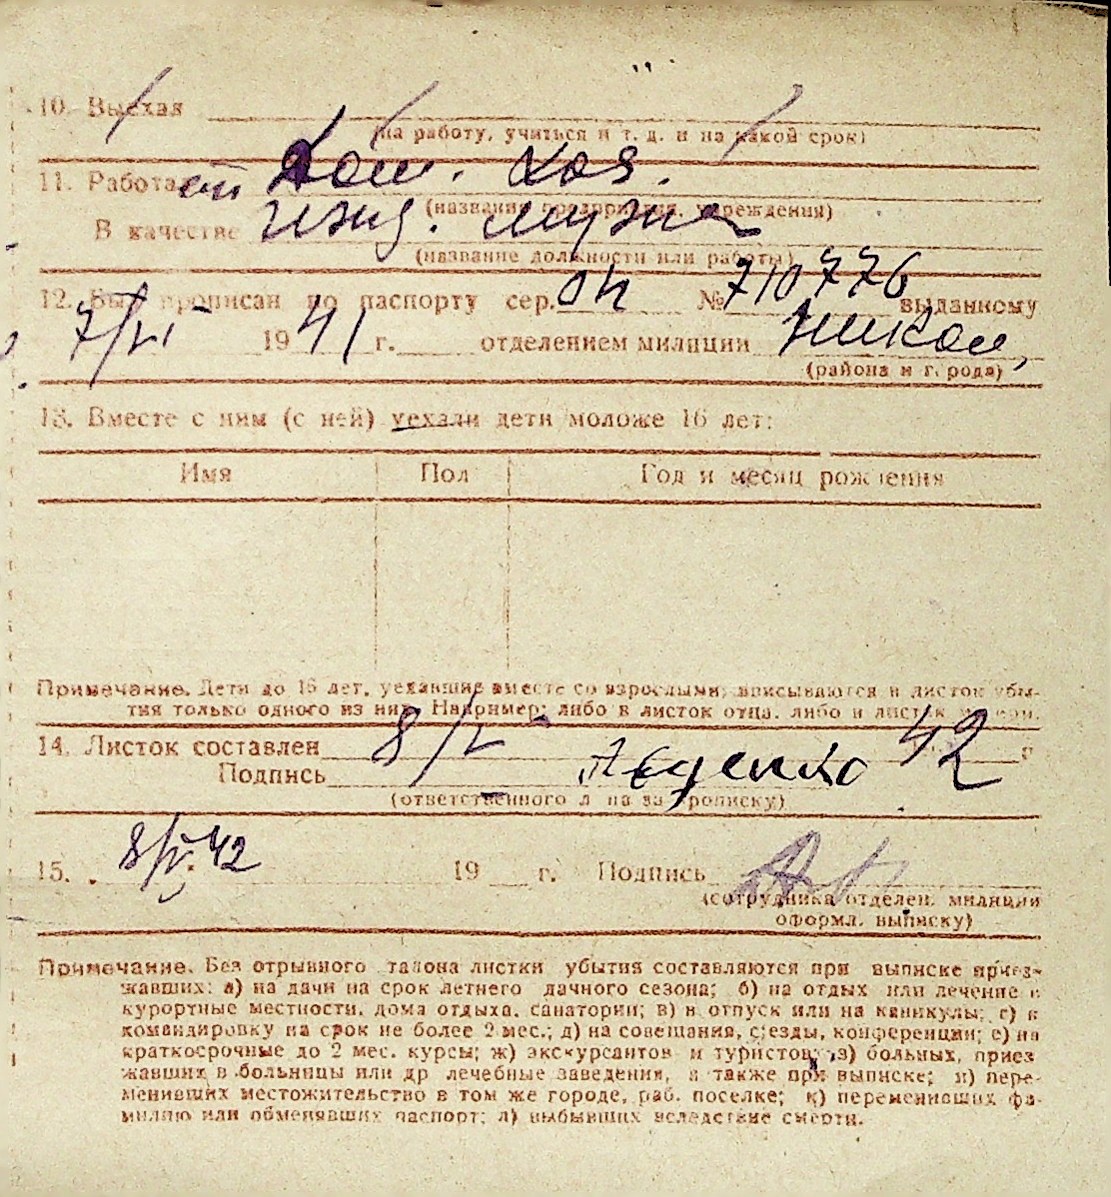 10. Выехал
(на работу, учиться и т. д. и на какой срок)
11. Работает Дом. хоз.
(название предприятия, учреждения)
В качестве ижд. мужа
(название должности или работы)
12. Был прописан по паспорту сер. № 710776 выданному
7/VI 1941 г. отделением милиции Никол,
(района и города)
13. Вместе с ним (с ней) уехали дети моложе 16 лет:
Имя Пол Год и месяц рождения
Примечание. Дети до 16 лет, уехавшие вместе со взрослыми, вписываются в листок убы-
тия только одного из них. Например: либо в листок отца, либо в листок матери.
14. Листок составлен 8/V 42 г.
Подпись
(ответственного лица за прописку)
15. 8/V 42 19 г. Подпись
(сотрудника отделен. милиции
оформл. выписку)
Примечание. Без отрывного талона листки убытия составляются при выписке приез-
жавших: а) на дачи на срок летнего дачного сезона; б) на отдых или лечение в
курортные местности, дома отдыха, санатории; в) в отпуск или на каникулы; г) в
командировку на срок не более 2 мес.; д) на совещания, съезды, конференции; е) на
краткосрочные до 2 мес. курсы; ж) экскурсантов и туристов; з) больных, приез
жавших в больницы или др лечебные заведения, а также при выписке; и) пере-
менивших местожительство в том же городе, раб. поселке; к) переменивших фа-
милию или обменявших паспорт; л) выбывших вследствие смерти.